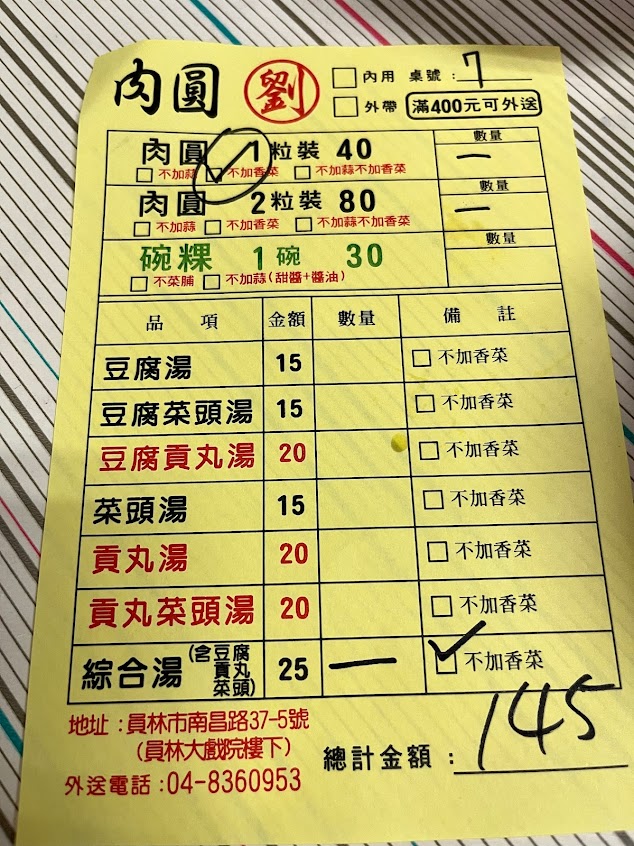 肉圓 劉 □內用 桌號:7
□外帶 滿400元可外送
肉圓 1粒裝 40 數量 一
□不加蒜 ☑不加香菜 □不加蒜不加香菜
肉圓 2粒裝 80 數量 一
□不加蒜 □不加香菜 □不加蒜不加香菜
碗粿 1碗 30 數量
□不菜脯 □不加蒜(甜醬+醬油)
品項 金額 數量 備註
豆腐湯 15 □不加香菜
豆腐菜頭湯 15 □不加香菜
豆腐貢丸湯 20 □不加香菜
菜頭湯 15 □不加香菜
貢丸湯 20 □不加香菜
貢丸菜頭湯 20 □不加香菜
綜合湯(含豆腐貢丸菜頭) 25 一 ☑不加香菜
地址:員林市南昌路37-5號
(員林大戲院樓下)
外送電話:04-8360953
總計金額:145